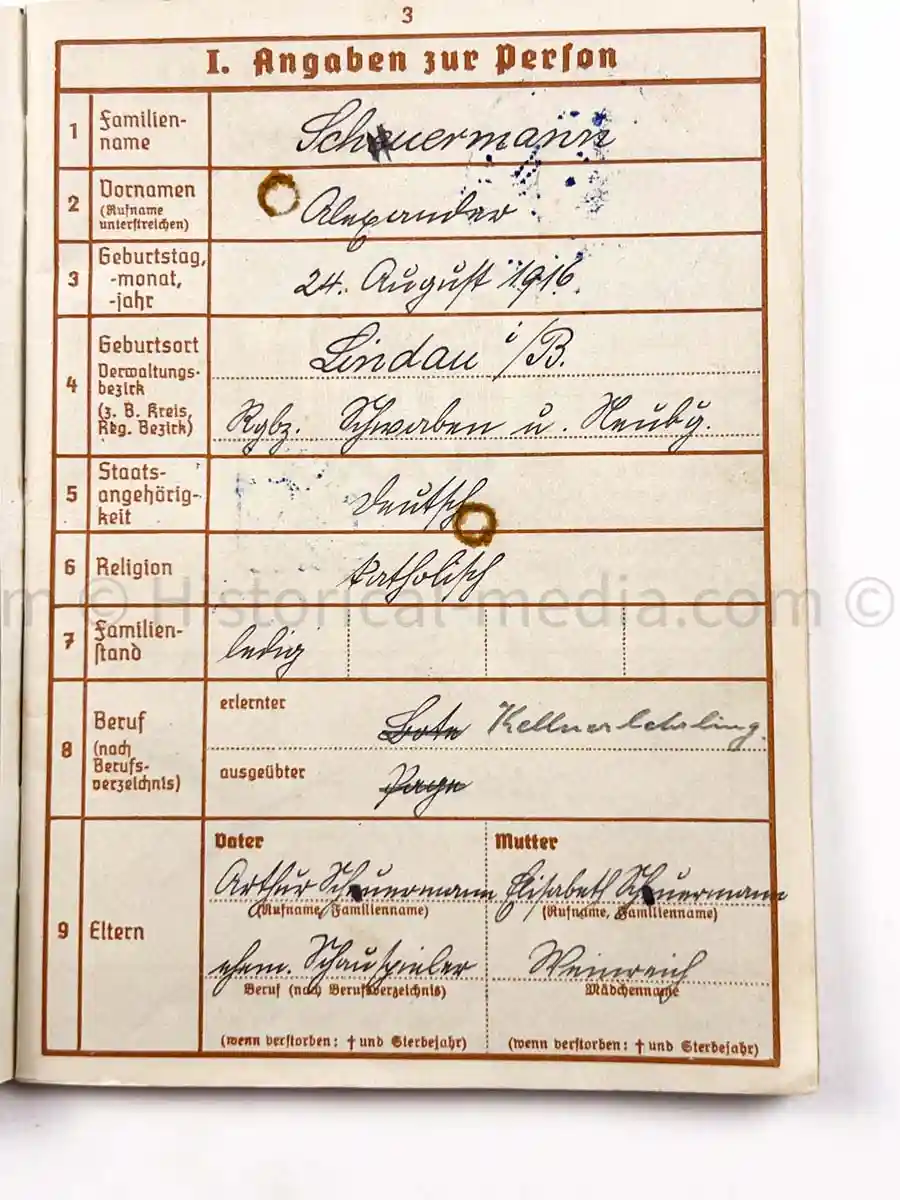 3
I. Angaben zur Person
1 Familien-
name
Scheuermann
2 Vornamen
(Rufname
unterstreichen)
Alexander
3 Geburtstag,
-monat,
-jahr
24. August 1916
4 Geburtsort
Verwaltungs-
bezirk
(z. B. Kreis,
Reg. Bezirk)
Lindau i/B.
Rgbz. Schwaben u. Neubg.
5 Staats-
angehörig-
keit
deutsch
6 Religion
katholisch
m © Historical-media.com ©
7 Familien-
stand
ledig
8 Beruf
(nach
Berufs-
verzeichnis)
erlernter
Bote Kellnerlehrling.
ausgeübter
Page
9 Eltern
Vater
Arthur Scheuermann
(Rufname, Familienname)
ehem. Schauspieler
Beruf (nach Berufsverzeichnis)
(wenn verstorben: † und Sterbejahr)
Mutter
Elisabeth Scheuermann
(Rufname, Familienname)
Weinreich
Mädchenname
(wenn verstorben: † und Sterbejahr)